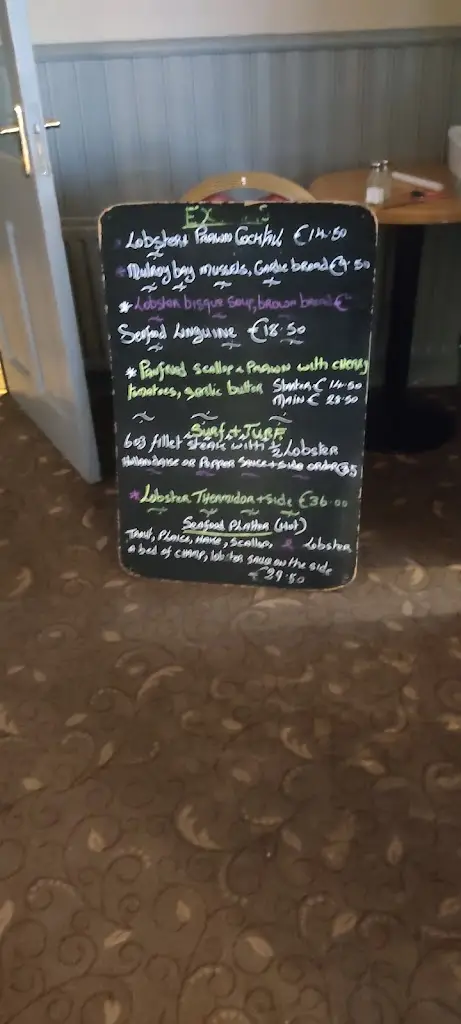 Lobster & Prawn Cocktail €14.50
* Mulroy bay mussels, Garlic bread €9.50
* Lobster bisque soup, brown bread €
Seafood Linguine €18.50
* Panfried Scallop & Prawn with cherry
tomatoes, garlic butter Starter € 14.50
Main € 28.50
Surf + Turf
6oz fillet steak with ½ Lobster
Hollandaise or Pepper Sauce + side order
* Lobster Thermidor + side €36.00
Seafood Platter (Hot)
Trout, Plaice, Hake, Scallop, & Lobster
a bed of champ, lobster sauce on the side
€29.50